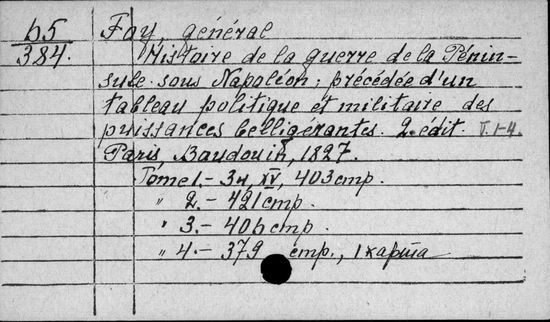 h5 Foy, général
384. Histoire de la guerre de la Pénin-
sule sous Napoléon; précédée d'un
tableau politique et militaire des
puissances belligérantes. 2. édit. T.1-4.
Paris, Baudouin, 1827.
Tome 1.- 3н, XV, 403 стр.
" 2.- 421 стр.
" 3.- 406 стр.
" 4.- 379 стр., 1 карта